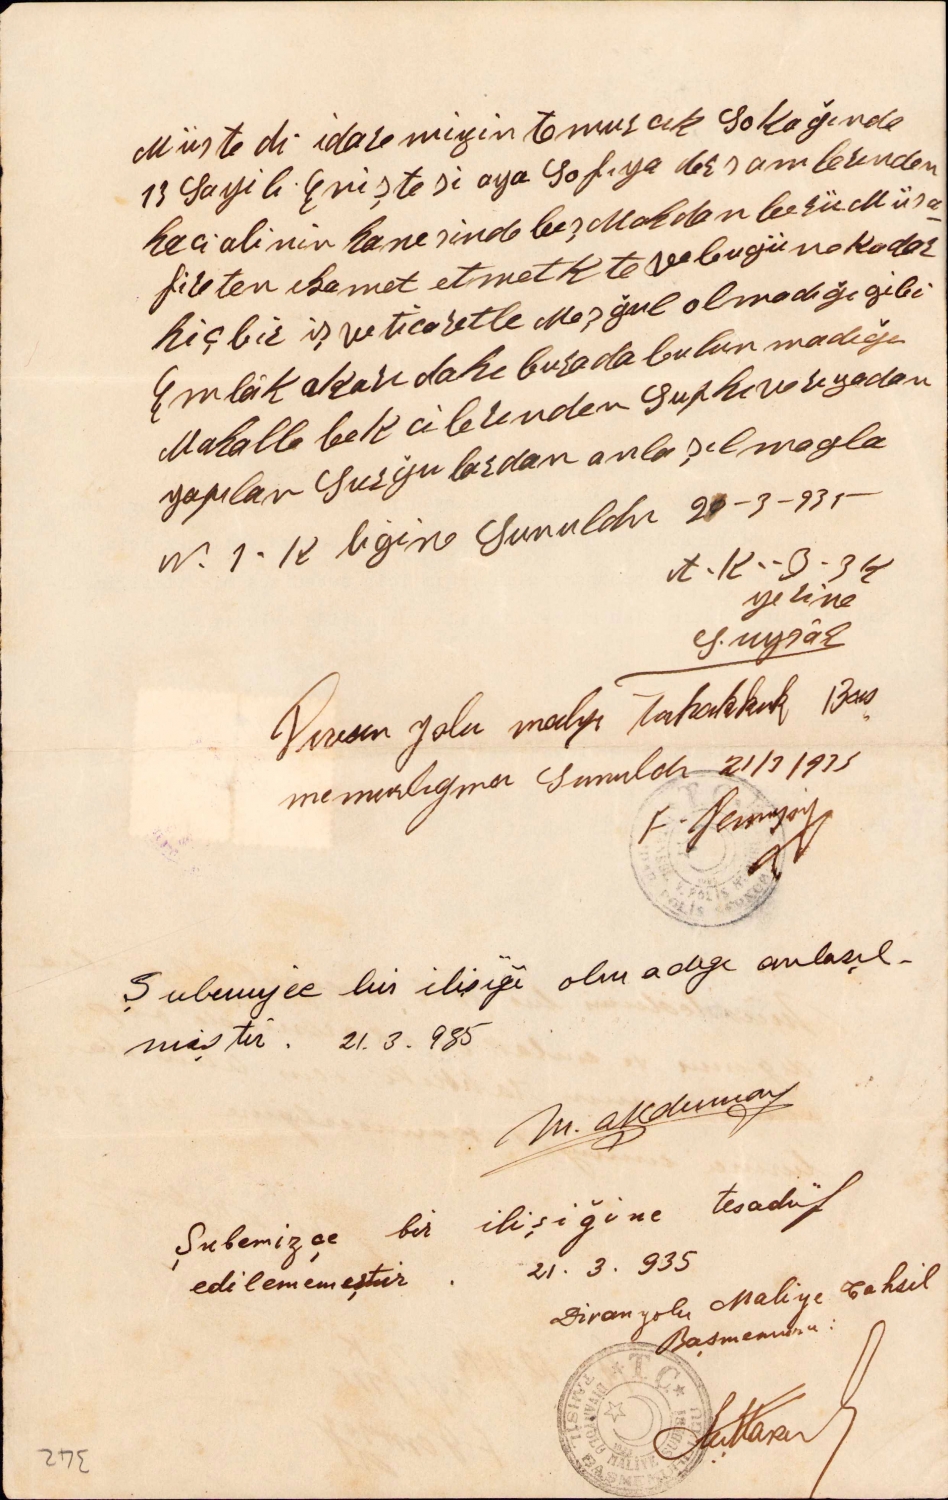 Müstedi idaremizin tomurcuk sokağında
13 Sayili Eniştesi aya Sofiya dersamlerinden
haci alinin hanesinde beş Mahdan berü Müsa
fireten ikamet etmekkte ve bugüne kadar
hiç bir iş ve ticaretle Meşğul olmadığı gibi
Emlâk akarı dahi burada bulunmadığı
Mahalle bekcilerinden Suphi ve riyadan
yapılan Surğulardan anlaşılmagla
N. 1. K ligine Sunuldu 20-3-935
yerine
S. uysâl
Divan yolu maliye Tahakkuk Baş
memurlığına Sunuldu 21/3/935
Şubemizce bir ilişiği olmadığı anlaşıl-
mıştır. 21.3.935
M. akdumay
Şubemizçe bir ilişiğine tesadüf
edilememeştir. 21.3.935
Divanyolu Maliye Tahsil
Başmemuru:
T.C.
DİVANYOLU MALİYE ŞUBESİ
342